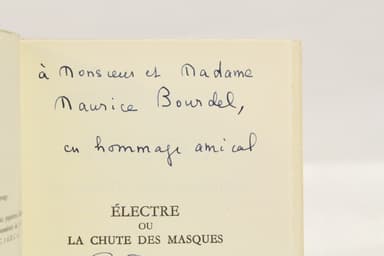 à Monsieur et Madame
Maurice Bourdel,
en hommage amical
ÉLECTRE
OU
LA CHUTE DES MASQUES